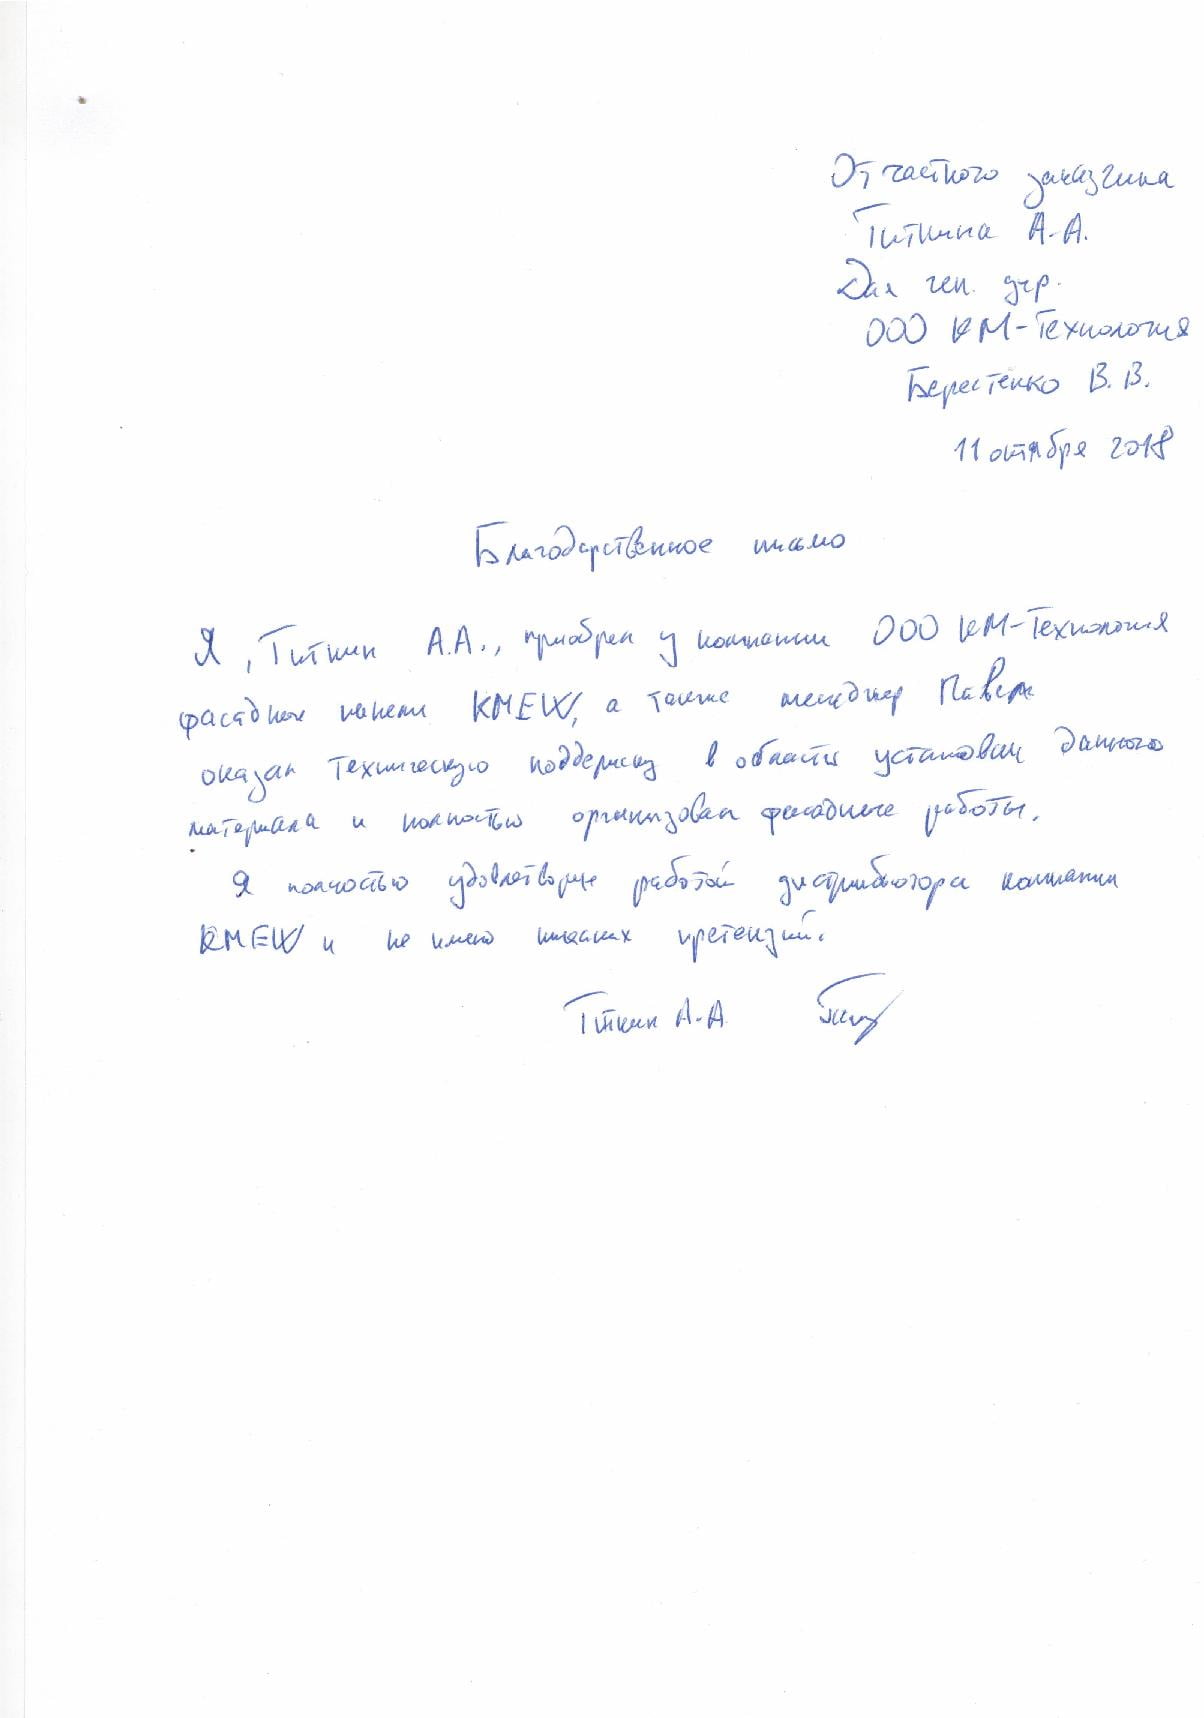 От частного заказчика
Титкина А.А.
Для ген. дир.
ООО КМ-Технология
Берестенко В.В.
11 октября 2018
Благодарственное письмо
Я, Титкин А.А., приобрел у компании ООО КМ-Технология
фасадные панели KMEW, а также менеджер Павел
оказал техническую поддержку в области установки данного
материала и полностью организовал фасадные работы.
Я полностью удовлетворен работой дистрибьютора компании
KMEW и не имею никаких претензий.
Титкин А.А